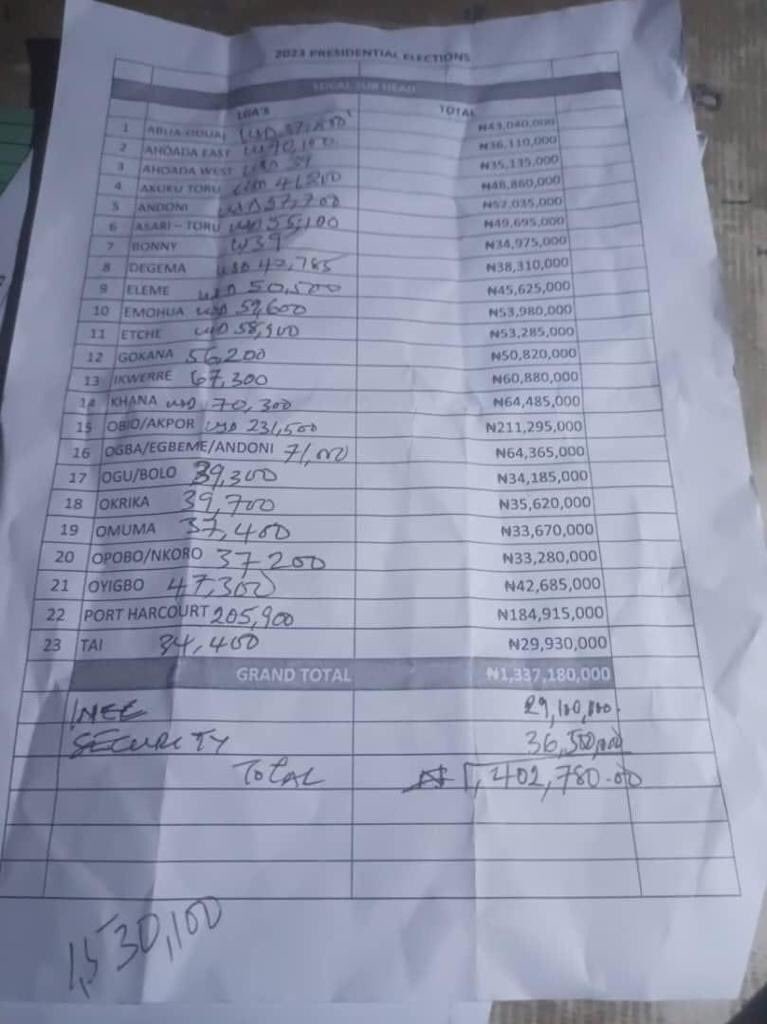 2023 PRESIDENTIAL ELECTIONS
LGA'S TOTAL
1 ABUA-ODUAL USD ₦43,040,000
2 AHOADA EAST ₦36,110,000
3 AHOADA WEST ₦35,135,000
4 AKUKU TORU ₦48,860,000
5 ANDONI USD 57,700 ₦52,035,000
6 ASARI-TORU USD 55,100 ₦49,695,000
7 BONNY ₦34,975,000
8 DEGEMA USD 42,785 ₦38,310,000
9 ELEME USD 50,500 ₦45,625,000
10 EMOHUA USD 59,600 ₦53,980,000
11 ETCHE USD 58,900 ₦53,285,000
12 GOKANA 56,200 ₦50,820,000
13 IKWERRE 67,300 ₦60,880,000
14 KHANA USD 70,300 ₦64,485,000
15 OBIO/AKPOR USD 231,500 ₦211,295,000
16 OGBA/EGBEME/ANDONI 71,000 ₦64,365,000
17 OGU/BOLO 39,300 ₦34,185,000
18 OKRIKA 39,700 ₦35,620,000
19 OMUMA 37,400 ₦33,670,000
20 OPOBO/NKORO 37,200 ₦33,280,000
21 OYIGBO 47,300 ₦42,685,000
22 PORT HARCOURT 205,900 ₦184,915,000
23 TAI 34,400 ₦29,930,000
GRAND TOTAL ₦1,337,180,000
INEC 29,100,000
SECURITY 36,500,000
TOTAL ₦1,402,780.00
1,530,100